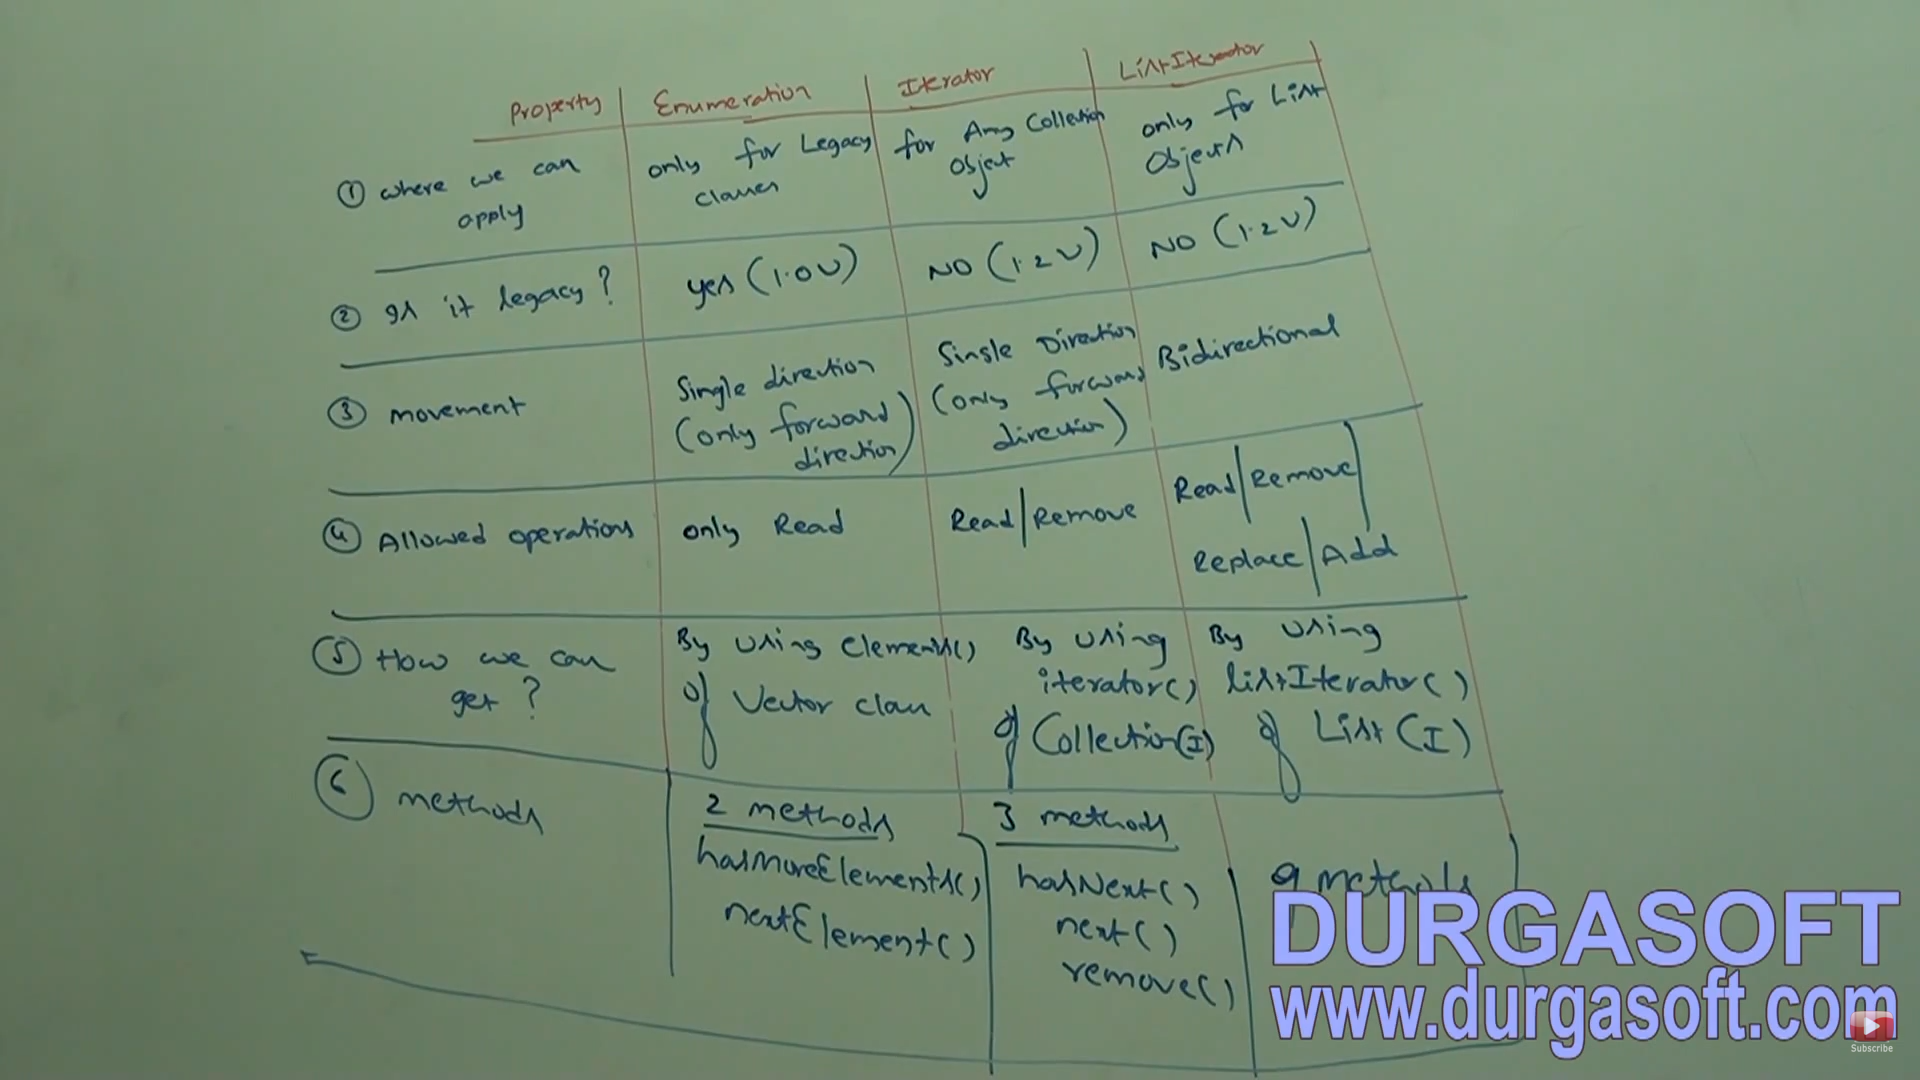 Property Enumeration Iterator ListIterator
① where we can apply
only for Legacy classes
for Any Collection Object
only for List Objects
② Is it legacy?
yes (1.0 V)
NO (1.2 V)
NO (1.2 V)
③ movement
Single direction
(only forward
direction)
Single Direction
(only forward
direction)
Bidirectional
④ Allowed operations
only Read
Read/Remove
Read/Remove/
Replace/Add
⑤ How we can
get?
By using elements()
of Vector class
By using
iterator()
of Collection(I)
By using
listIterator()
of List(I)
⑥ methods
2 methods
hasMoreElements()
nextElement()
3 methods
hasNext()
next()
remove()
9 methods
DURGASOFT
www.durgasoft.com
Subscribe